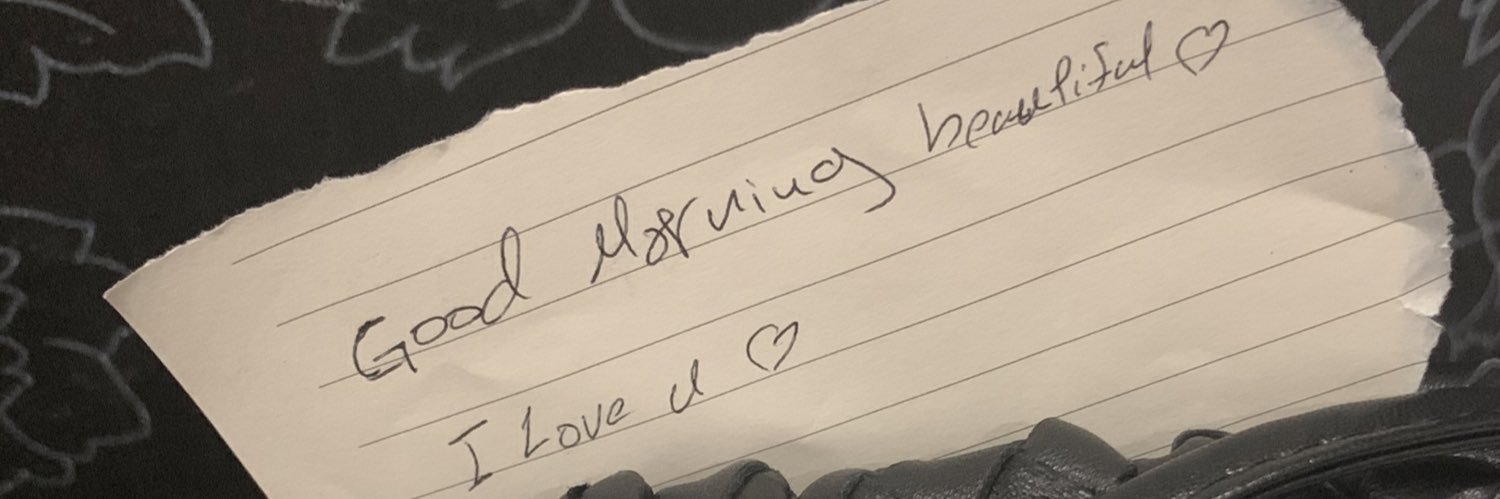 Good Morning beautiful ♡
I Love u ♡